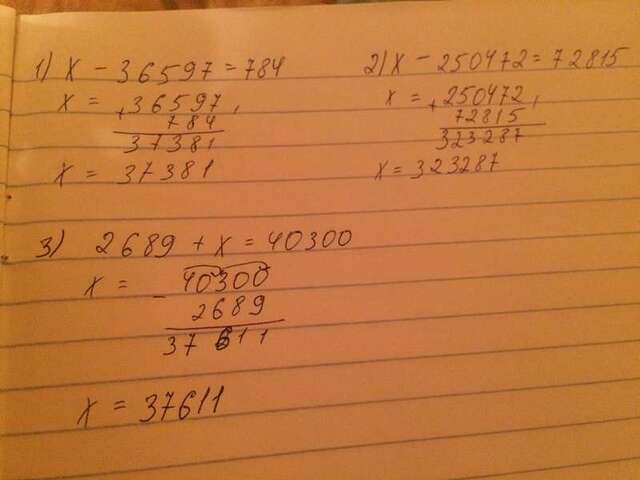 1) x - 36597 = 784
x = + 36597
784
37381
x = 37381
2) x - 250472 = 72815
x = + 250472
72815
323287
x = 323287
3) 2689 + x = 40300
x = - 40300
2689
37611
x = 37611